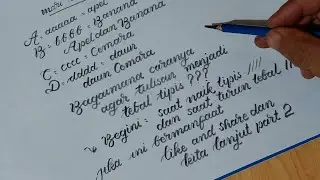 A: aaaaa = apel
B: bbbb = Banana
Apel dan Banana
C: cccc = Cemara
D: dddd = daun
daun Cemara
Bagaimana caranya
agar tulisan menjadi
tebal tipis ???
Begini: saat naik tipis ////
dan saat turun tebal ////
jika ini bermanfaat
like and share dan
kita lanjut part 2